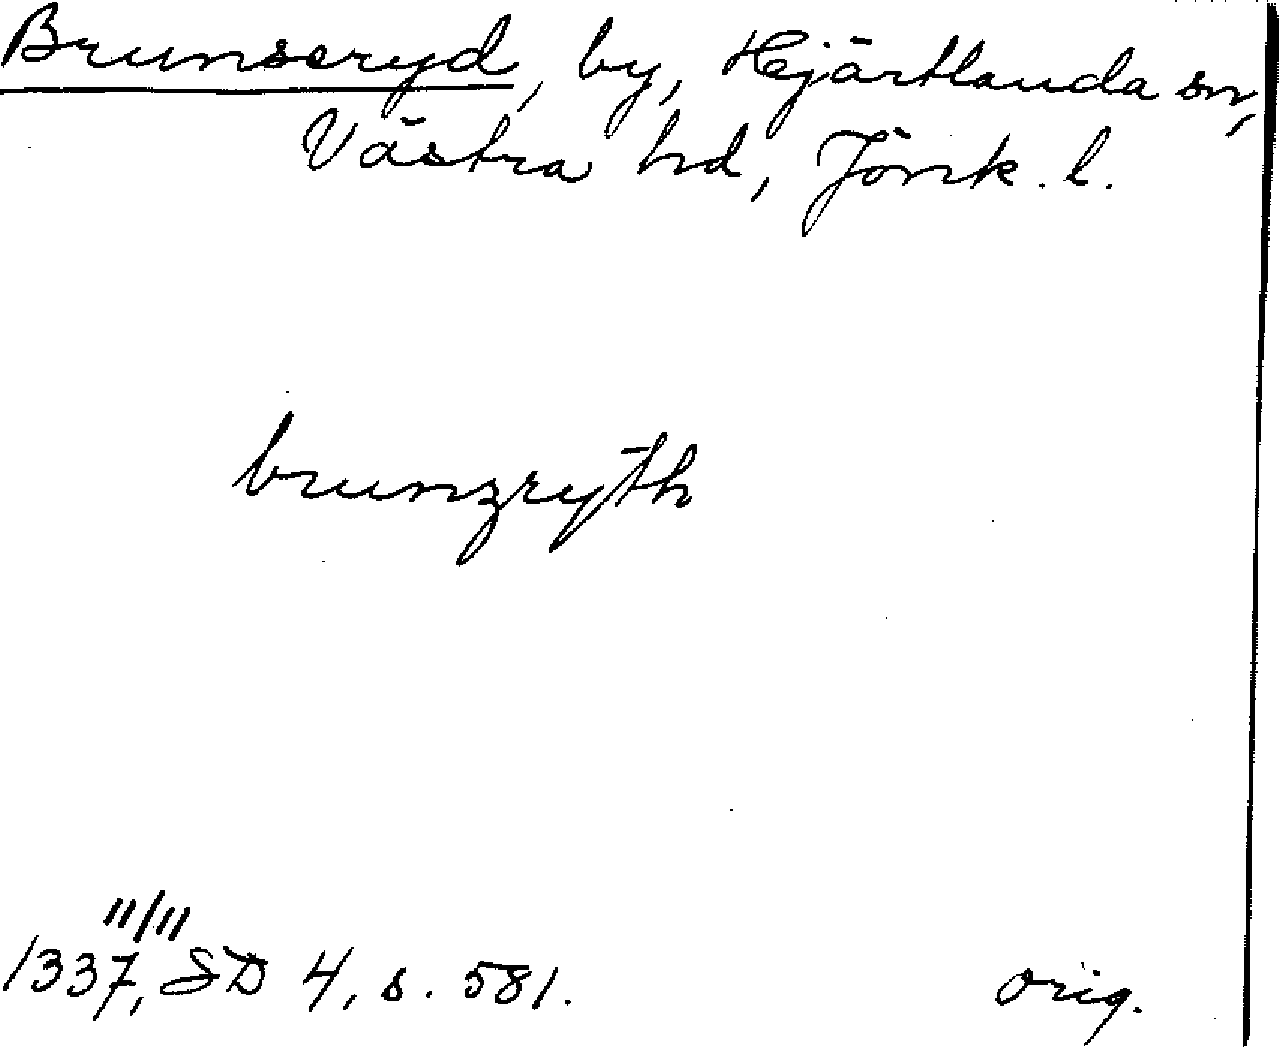 Brunseryd, by, Hjärtlanda sn,
Västra hd, Jönk. l.
brunzryth
11/11
1337, SD 4, s. 581.
orig.